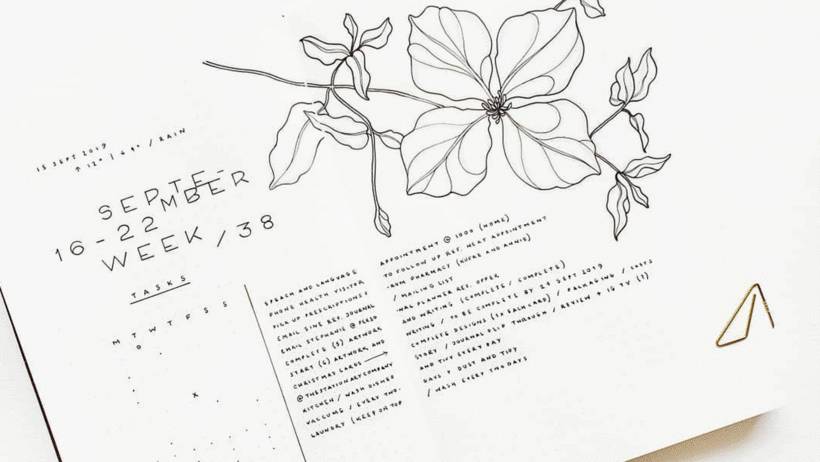 15 SEPT 2019
↑ 12° | ↓ 9° / RAIN
SEPTE-
MBER
16-22
WEEK / 38
TASKS
M T W T F S S
SPEECH AND LANGUAGE APPOINTMENT @ 1000 (HOME)
PHONE HEALTH VISITOR TO FOLLOW UP REF. NEXT APPOINTMENT
PICK UP PRESCRIPTIONS FROM PHARMACY (KUPRE AND ANNIE)
EMAIL SINE REF. JOURNAL / MAILING LIST
EMAIL STEPHANIE @ PERSO -NAL PLANNER REF. OFFER
COMPLETE (5) ARTWORK AND WRITING (COMPLETE / COMPLETE)
START (6) ARTWORK AND WRITING / TO BE COMPLETE BY 24 SEPT 2019
CHRISTMAS CARDS → COMPLETE DESIGNS (1X EACH CARD) / PACKAGING / COSTS
@THESTATIONARYCOMPANY STORY / JOURNAL FLIP THROUGH / REVIEW + IG TV (1)
KITCHEN / WASH DISHES AND TIDY EVERY DAY
VACUUMS / EVERY TWO DAYS + DUST AND TIDY
LAUNDRY (KEEP ON TOP / WASH EVERY TWO DAYS